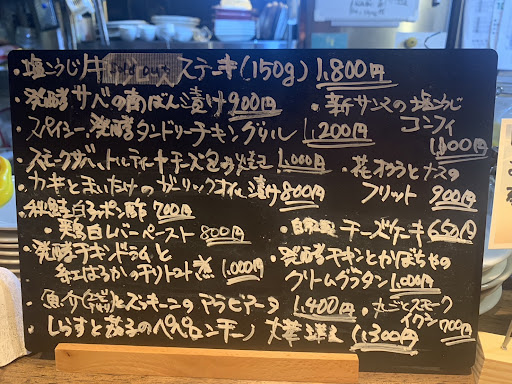 ・塩こうじ ステーキ(150g) 1,800円
・発酵サバの南ばん漬け 900円
・新サンマの塩こうじ
コンフィ
1,000円
・スパイシー発酵タンドリーチキングリル 1,200円
・スモークサバ、トルティーヤチーズ包み焼き 1,000円
・花オクラとナスの
フリット 900円
・カキとまいたけのガーリックオイル漬け 800円
・秋鮭白子ポン酢 700円
・鶏白レバーペースト 800円
・自家製 チーズケーキ 650円
・発酵チキンドラムと
紅はるかのチリトマト煮 1,000円
・発酵チキンとかぼちゃの
クリームグラタン 1,000円
・魚介 とズッキーニのアラビアータ 1,400円
スモーク
700円
しらすと茄子のペペロンチーノ 大葉 1,300円